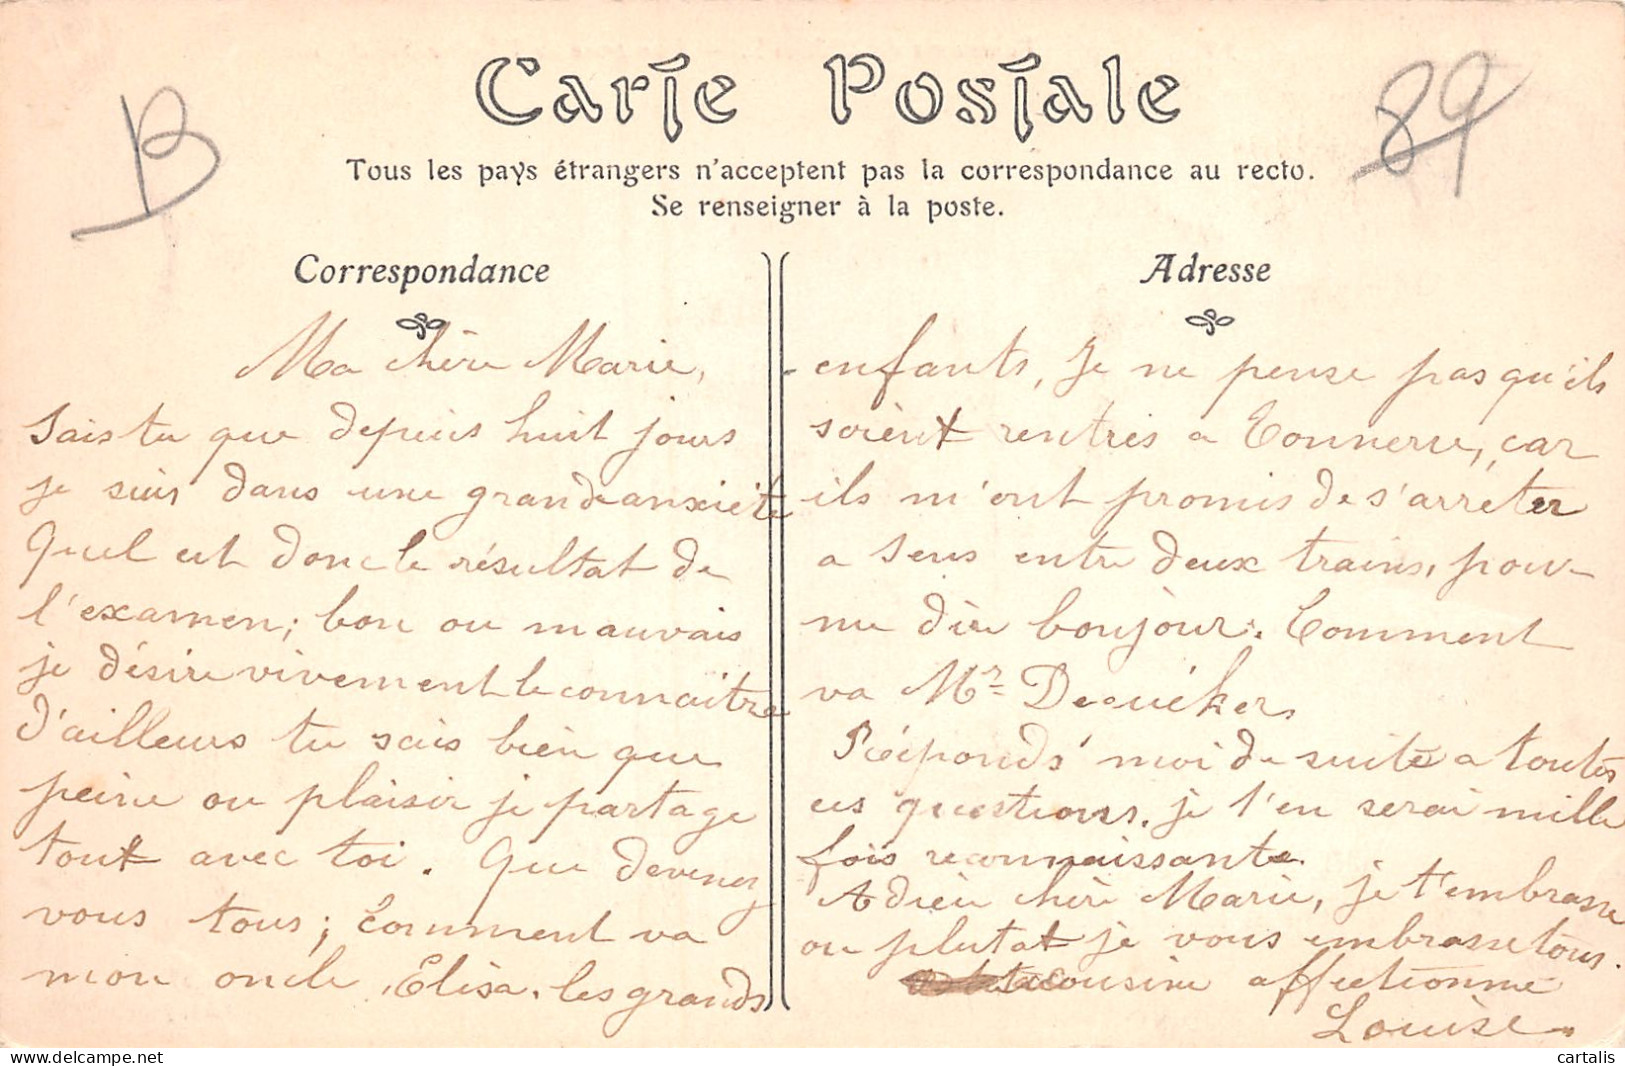 B
Carte Postale
89
Tous les pays étrangers n'acceptent pas la correspondance au recto.
Se renseigner à la poste.
Correspondance
Ma chère Marie,
Sais tu que depuis huit jours
je suis dans une grande anxiété
Quel est donc le résultat de
l'examen; bon ou mauvais
je désire vivement le connaitre
d'ailleurs tu sais bien que
peine ou plaisir je partage
tout avec toi. Que devenez
vous tous; Comment va
mon oncle, Elisa, les grands
Adresse
enfants, Je ne pense pas qu'ils
soient rentrés a Tonnerre, car
ils m'ont promis de s'arrêter
a Sens entre deux trains, pour
me dire bonjour. Comment
va Mr Decuékers
Réponds moi de suite a toutes
ces questions, je t'en serai mille
fois reconnaissante.
Adieu chère Marie, je t'embrasse
ou plutat je vous embrasse tous.
ta cousine affectionnée
Louise
cartalis